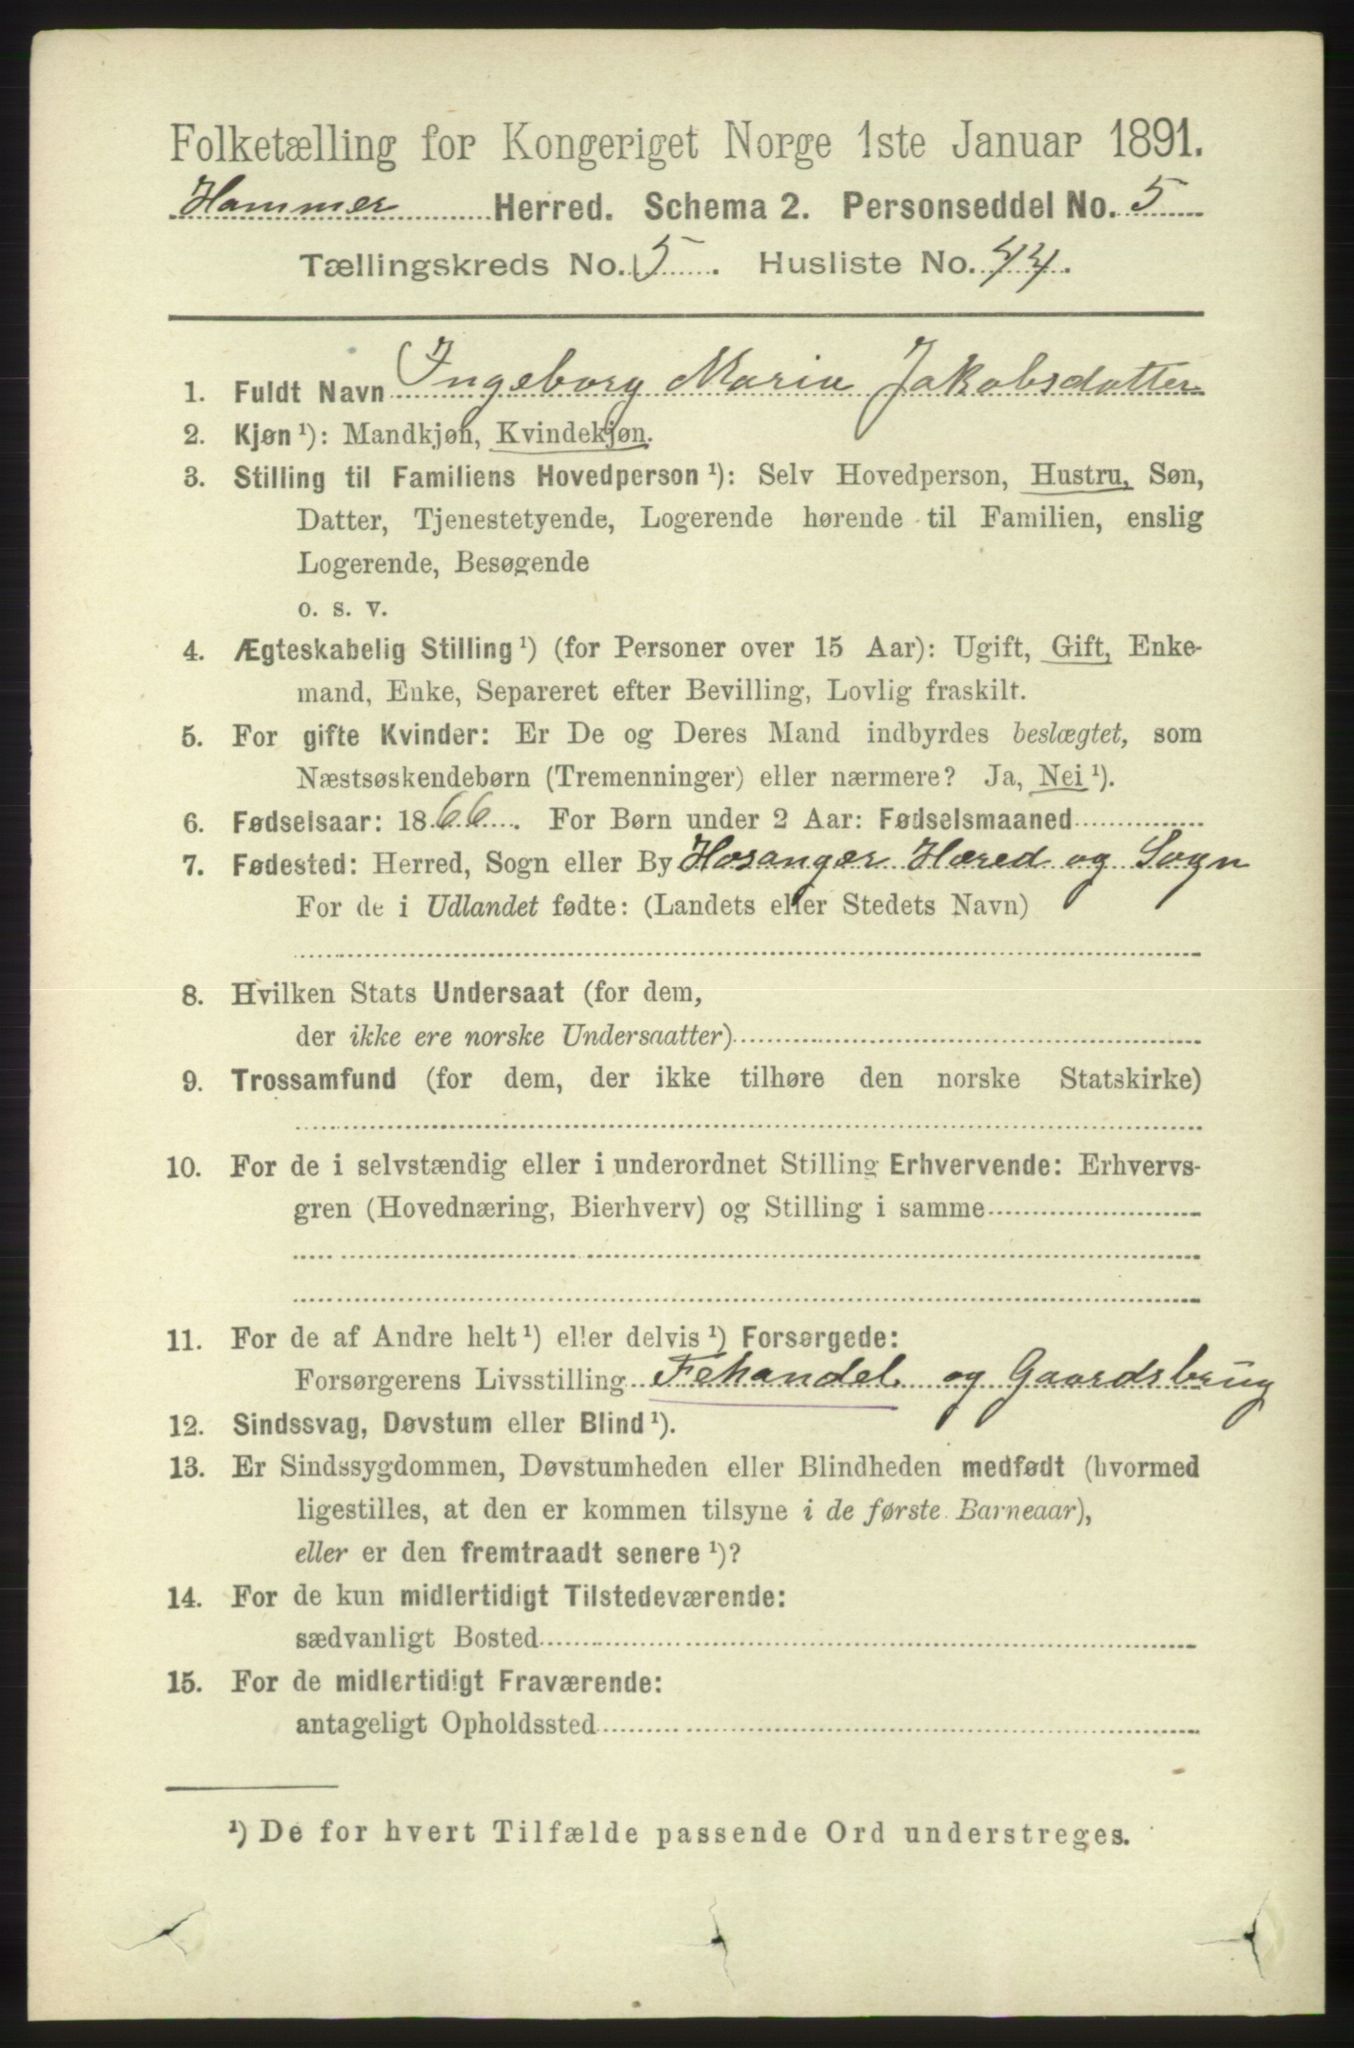 Folketælling for Kongeriget Norge 1ste Januar 1891.
Hammer Herred. Schema 2. Personseddel No. 5
Tællingskreds No. 5. Husliste No. 44.
1. Fuldt Navn Ingeborg Maria Jakobsdatter
2. Kjøn ¹): Mandkjøn, Kvindekjøn.
3. Stilling til Familiens Hovedperson ¹): Selv Hovedperson, Hustru, Søn,
Datter, Tjenestetyende, Logerende hørende til Familien, enslig
Logerende, Besøgende
o. s. v.
4. Ægteskabelig Stilling ¹) (for Personer over 15 Aar): Ugift, Gift, Enke-
mand, Enke, Separeret efter Bevilling, Lovlig fraskilt.
5. For gifte Kvinder: Er De og Deres Mand indbyrdes beslægtet, som
Næstsøskendebørn (Tremenninger) eller nærmere? Ja, Nei ¹).
6. Fødselsaar: 1866. For Børn under 2 Aar: Fødselsmaaned
7. Fødested: Herred, Sogn eller By Hosanger Hered og Sogn
For de i Udlandet fødte: (Landets eller Stedets Navn)
8. Hvilken Stats Undersaat (for dem,
der ikke ere norske Undersaatter)
9. Trossamfund (for dem, der ikke tilhøre den norske Statskirke)
10. For de i selvstændig eller i underordnet Stilling Erhvervende: Erhvervs-
gren (Hovednæring, Bierhverv) og Stilling i samme
11. For de af Andre helt ¹) eller delvis ¹) Forsørgede:
Forsørgerens Livsstilling Fehandel og Gaardsbrug
12. Sindssvag, Døvstum eller Blind ¹).
13. Er Sindssygdommen, Døvstumheden eller Blindheden medfødt (hvormed
ligestilles, at den er kommen tilsyne i de første Barneaar),
eller er den fremtraadt senere ¹)?
14. For de kun midlertidigt Tilstedeværende:
sædvanligt Bosted
15. For de midlertidigt Fraværende:
antageligt Opholdssted
¹) De for hvert Tilfælde passende Ord understreges.